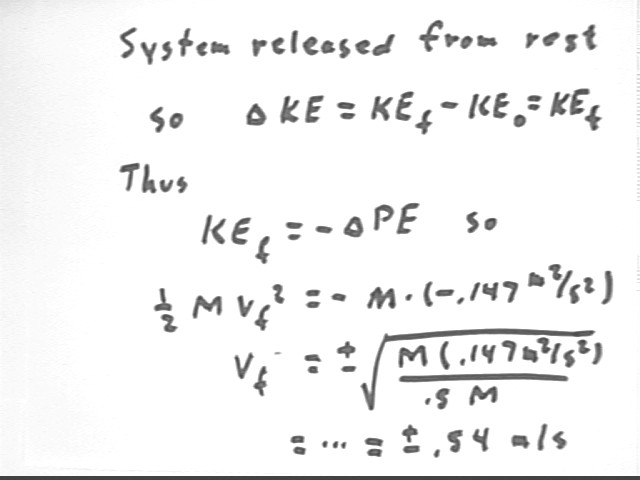 System released from rest
so Δ KE = KE_f - KE_0 = KE_f
Thus
KE_f = - Δ PE so
1/2 M v_f² = - M · (-.147 m²/s²)
v_f = ± √(M (.147 m²/s²) / .5 M)
= ... = ± .54 m/s